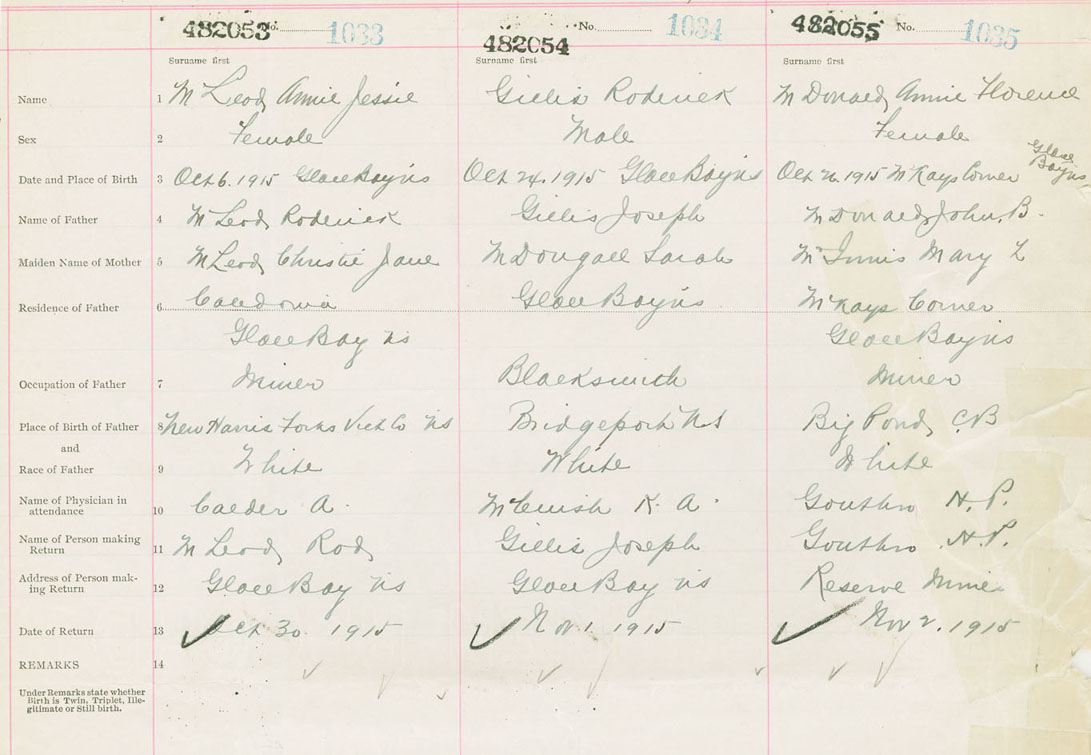 482053 No. 1033 482054 No. 1034 482055 No. 1035
Surname first Surname first Surname first
Name 1 McLeod, Annie Jessie Gillis Roderick McDonald, Annie Florence
Sex 2 Female Male Female
Date and Place of Birth 3 Oct 6. 1915 Glace Bay NS Oct 24. 1915 Glace Bay NS Oct 26. 1915 McKays Corner Glace Bay NS
Name of Father 4 McLeod, Roderick Gillis, Joseph McDonald, John. B.
Maiden Name of Mother 5 McLeod, Christie Jane McDougall Sarah McInnis Mary L
Residence of Father 6 Caledonia Glace Bay NS McKays Corner
Glace Bay NS Glace Bay NS
Occupation of Father 7 Miner Blacksmith Miner
Place of Birth of Father 8 New Harris Forks Vict Co NS Bridgeport NS Big Pond, C.B
and
Race of Father 9 White White White
Name of Physician in
attendance 10 Calder A. K. A. Gouthro H. P.
Name of Person making
Return 11 McLeod, Rod, Gillis Joseph Gouthro. H. P.
Address of Person mak-
ing Return 12 Glace Bay NS Glace Bay NS Reserve Mines
Date of Return 13 Oct 30. 1915 Nov 1. 1915 Nov 2. 1915
REMARKS 14
Under Remarks state whether
Birth is Twin, Triplet, Ille-
gitimate or Still birth.